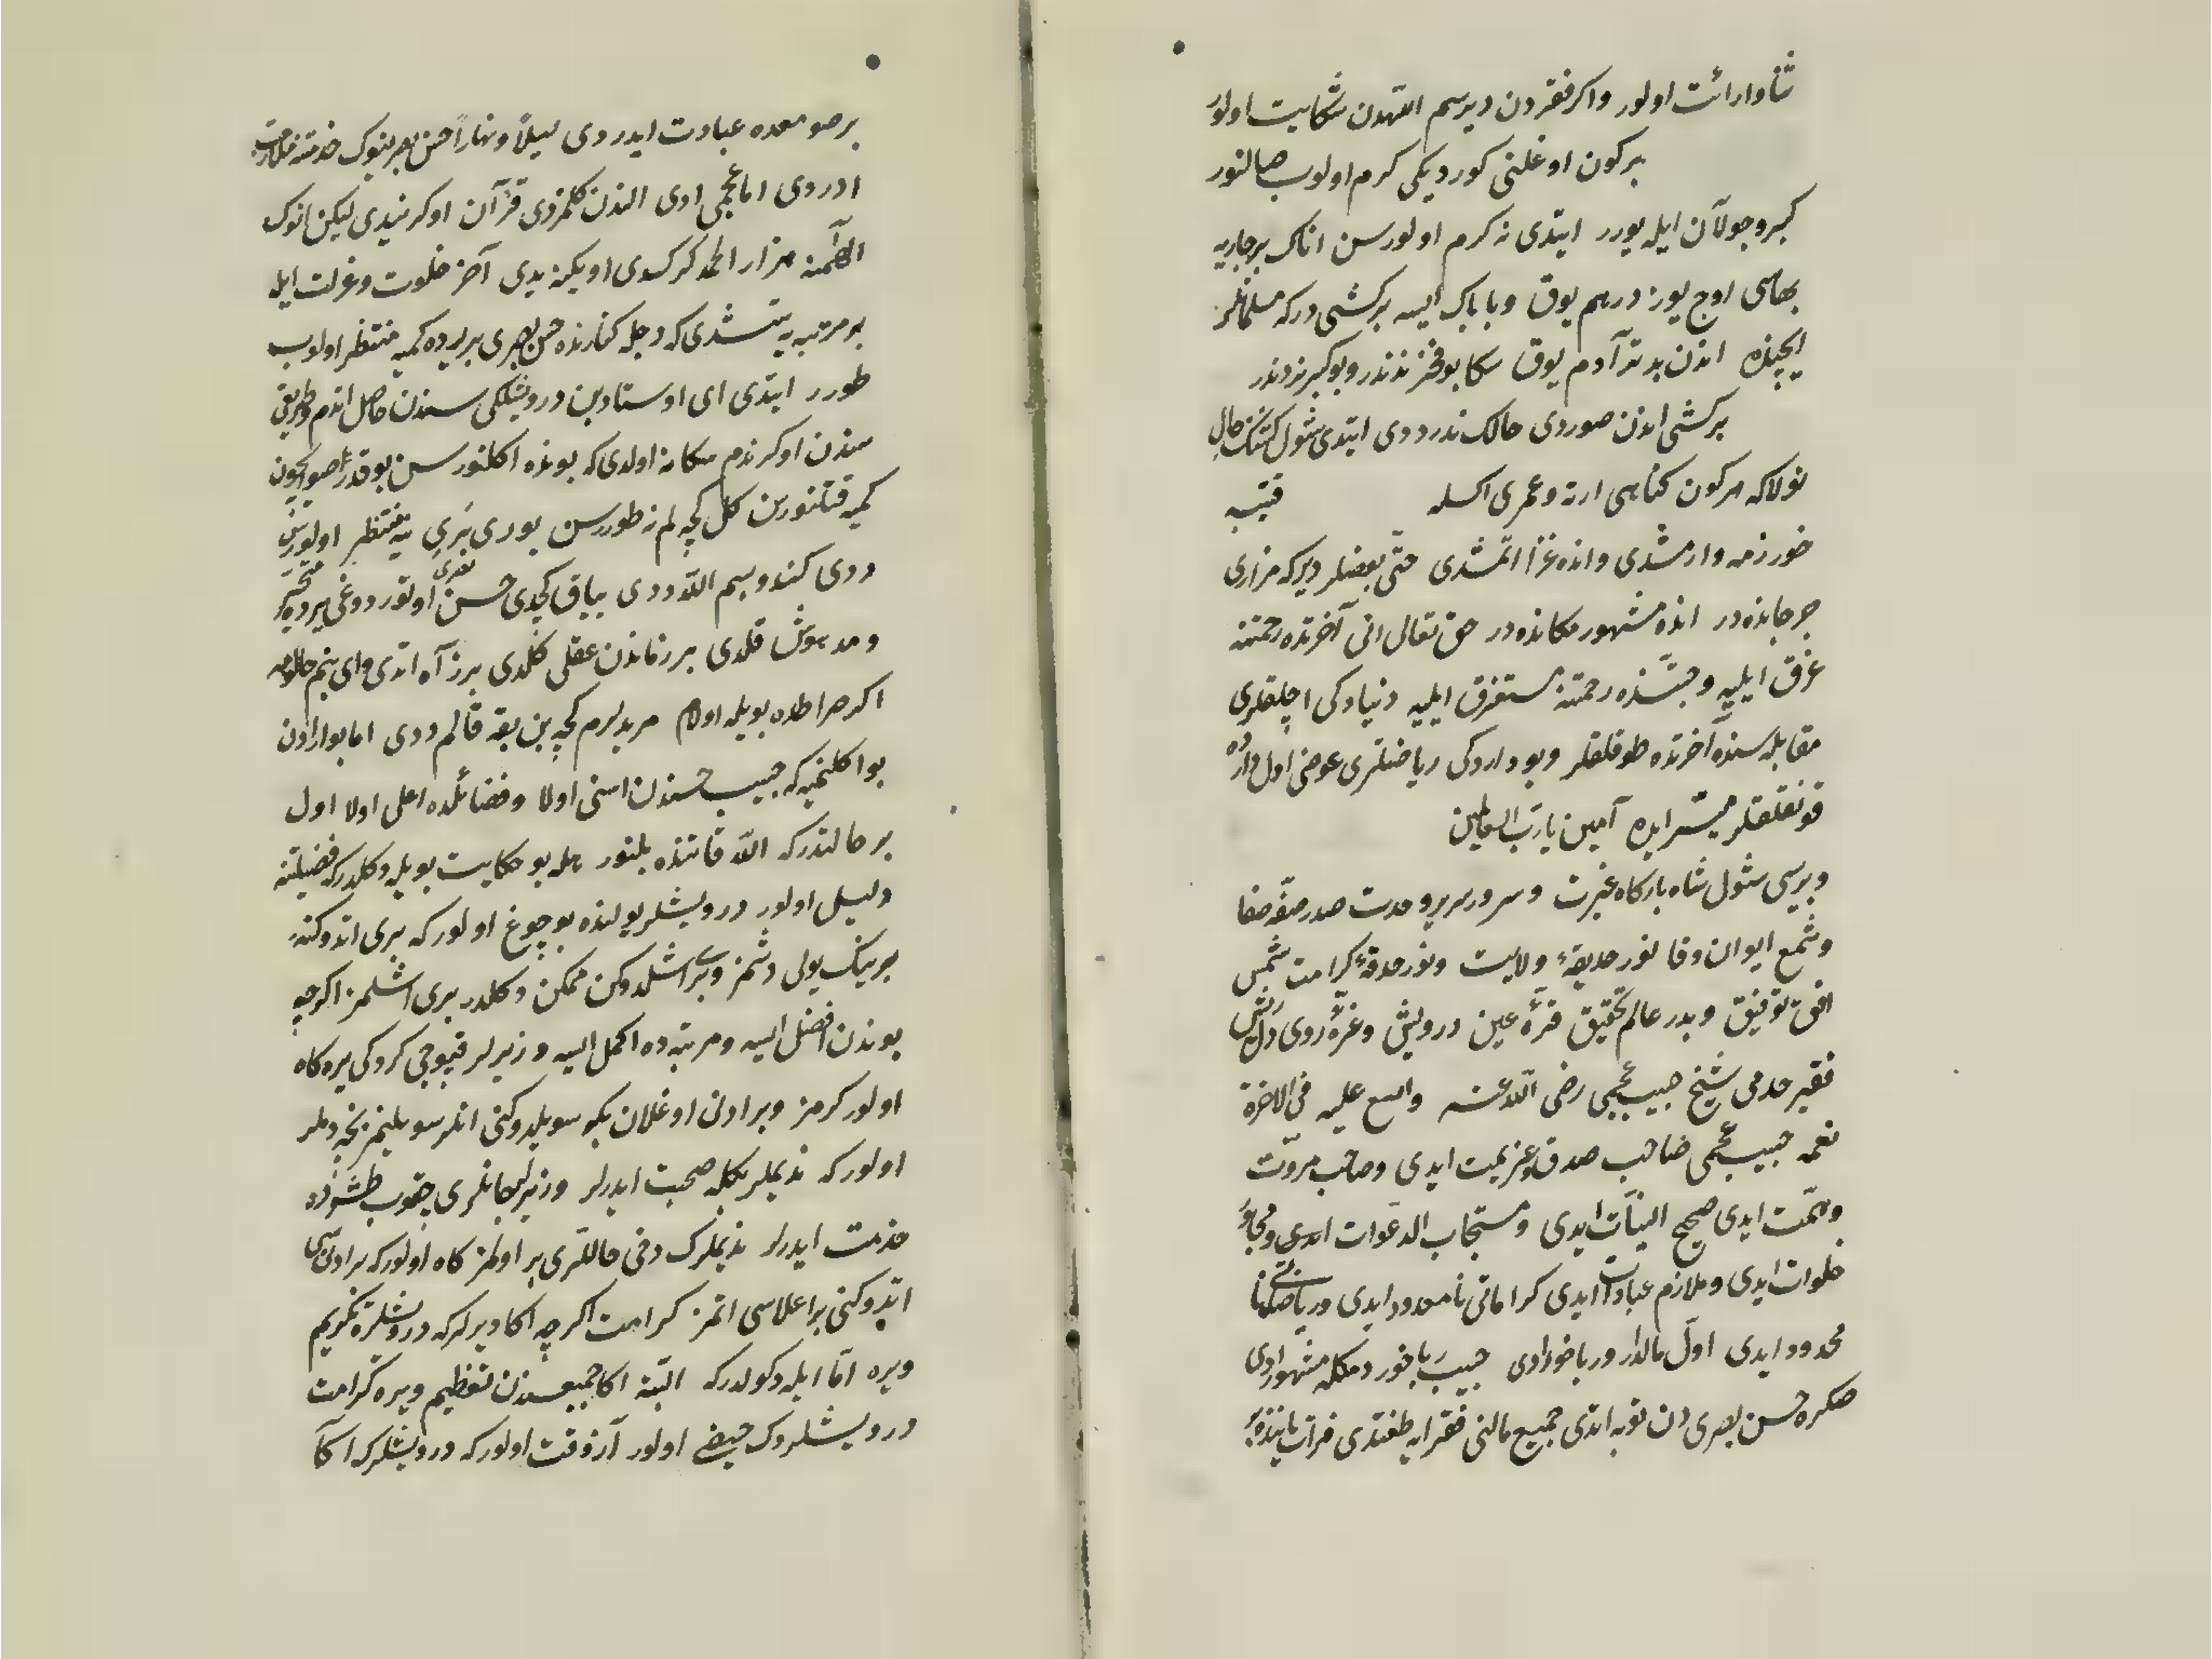 ثنا وارائت اولور واکر فقردن دیرسم اللّهدن شکایت اولور
برکون اوغلنی کوردیکی کرم اولوب صالنور
کبر وجولان ایله یورر ایتدی نه کرم اولورسن اناک بر جاریه
بهاسی اوچ یوز درهم یوق وباباک ایسه برکشی درکه مسلمانلر
ایچنده اندن بدتر آدم یوق سکا بو فخر نددر وبو کبر نددر
برکشی اندن صوردی حالک ندر ددی ایتدی شول کشینک حالی
نولاکه هرکون کناهی ارته وعمری اکسله قتیبه
خورزمه وارمشدی وانده غزا اتمشدی حتّی بعضلر دیرکه مزاری
جرجانده در انده مشهور مکانده در حق تعالی انی آخرتده رحمتنه
غرق ایلیه وجنّتده رحمتنه مستغرق ایلیه دنیاده کی اچلقلری
مقابله سنده آخرتده طوقلقلر وبو دارده کی ریاضتلری عوضی اول دارده
قونقلقلر میسّر ایده آمین یا ربّ العالمین
وبریسی شول شاه بارکاه غیرت وسرور سریر وحدت صدر صفّه صفا
وشمع ایوان وفا نور حدیقهٔ ولایت ونور حدقهٔ کرامت شمس
افق توفیق وبدر عالم تحقیق قرّهٔ عین درویش وغرّهٔ روی دلریش
فقیر حدمی شیخ حبیب عجمی رضی اللّه عنه واسع علیه فی الاخرة
نعمه حبیب عجمی صاحب صدق وعزیمت ایدی وصاحب مروّت
وهمّت ایدی صحیح النیّات ایدی ومستجاب الدّعوات ایدی ومجاور
خلوات ایدی وملازم عبادات ایدی کراماتی نامعدود ایدی وریاضاتی نا
محدود ایدی اوّل مالدار وربا خور ادی حبیب ربا خور دمکله مشهور ادی
صکره حسن بصری دن توبه اتدی جمیع مالنی فقرایه طغتدی فرات یاننده
بر صومعده عبادت ایدردی لیلاً ونهاراً حسن بصرینوک خدمتنه ملازمت
ادردی اما عجمی ادی الندن کلمزدی قرآن اوکرنیدی لیکن انوک
بو مرتبه یه یتشدی که دجله کنارنده حسن بصری بر یرده کمیه منتظر اولوب
طورر ایتدی ای اوستا دین درویشلکی سندن حاصل اتدم وطریقی
سندن اوکرندم سکا نه اولدی که بونده اکلنورسن بو قدر صو ایچون
کمیه قتلنورسن کل کچه لم نه طوررسن یوری نری یه منتظر اولورسن
ددی کندو بسم اللّه ددی یباق کچدی حسن بصری اوتوردوغی یرده متحیّر
ومدهوش قلدی بر زماندن عقلی کلدی برز آه اتدی وای بنم حالومه
اکر صراطده بویله اولام مریدلرم کچه بن یقه قالم ددی اما بو ارادن
بو اکلنمیه که حبیب حسندن اسنی اولا وفضائلده اعلی اولا اول
بر حالتدرکه اللّه قاتنده بلنور هله بو حکایت بویله دکلدرکه فضیلتنه
دلیل اولور درویشلر یولنده بو چوغ اولورکه بری اتدوکنه
برینک یولی دشمز وبری اشلدوکن ممکن دکلدر بری اشلمز اکرچه
بوندن افضل ایسه ومرتبه ده اکمل ایسه وزیرلر قپوجی کردوکی یره کاه
اولور کرمز وبر ادنی اوغلان بکه سویلدوکنی انلر سویلیمز نجه دملر
اولورکه ندیملر بکله صحبت ایدرلر وزیرلر جانلری چقوب طشره ده
خدمت ایدرلر ندیملرک دخی حاللری بر اولمز کاه اولورکه بر ادنیسی
اتدوکنی بر اعلاسی اتمز کرامت اکرچه اکا دیرلرکه درویشلره تکریم
ویره امّا ایله دکولدرکه البتّه اکا جمیعسندن تعظیم ویره کرامت
درویشلروک حیضی اولور آز وقت اولورکه درویشلرکه اکا